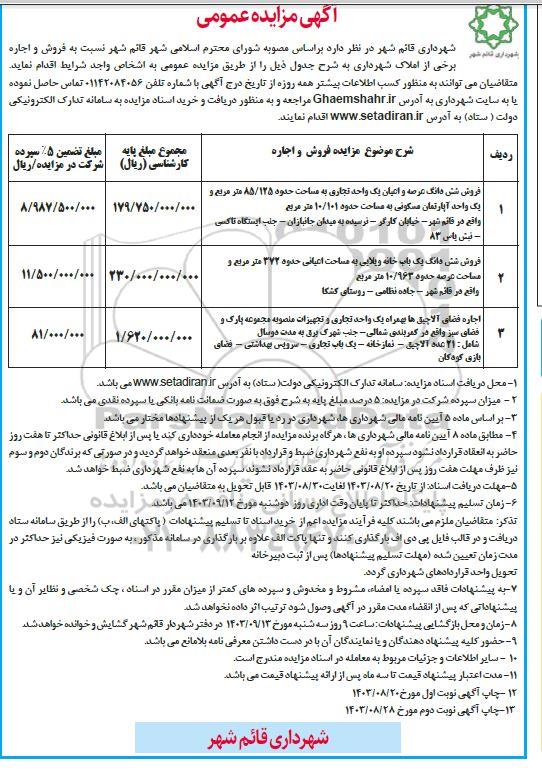 آگهی مزایده عمومی
شهرداری قائم شهر
شهرداری قائم شهر در نظر دارد براساس مصوبه شورای محترم اسلامی شهر قائم شهر نسبت به فروش و اجاره
برخی از املاک شهرداری به شرح جدول ذیل را از طریق مزایده عمومی به اشخاص واجد شرایط اقدام نماید.
متقاضیان می توانند به منظور کسب اطلاعات بیشتر همه روزه از تاریخ درج آگهی با شماره تلفن ۰۱۱۴۲۰۸۴۰۵۶ تماس حاصل نموده
یا به سایت شهرداری به آدرس Ghaemshahr.ir مراجعه و به منظور دریافت و خرید اسناد مزایده به سامانه تدارک الکترونیکی
دولت ( ستاد) به آدرس www.setadiran.ir اقدام نمایند.
ردیف
شرح موضوع مزایده فروش و اجاره
مجموع مبلغ پایه
کارشناسی (ریال)
مبلغ تضمین ۵٪ سپرده
شرکت در مزایده/ریال
۱
فروش شش دانگ عرصه و اعیان یک واحد تجاری به مساحت حدود ۸۵/۱۲۵ متر مربع و
یک واحد آپارتمان مسکونی به مساحت حدود ۱۰/۱۰۱ متر مربع
واقع در قائم شهر – خیابان کارگر – نرسیده به میدان جانبازان – جنب ایستگاه تاکسی
– نبش یاس ۸۳
۱۷۹/۷۵۰/۰۰۰/۰۰۰
۸/۹۸۷/۵۰۰/۰۰۰
۲
فروش شش دانگ یک باب خانه ویلایی به مساحت اعیانی حدود ۳۷۲ متر مربع و
مساحت عرصه حدود ۱۰/۹۶۳ متر مربع
واقع در قائم شهر – جاده نظامی – روستای کشکا
۲۳۰/۰۰۰/۰۰۰/۰۰۰
۱۱/۵۰۰/۰۰۰/۰۰۰
۳
اجاره فضای آلاچیق ها بهمراه یک واحد تجاری و تجهیزات منصوبه مجموعه پارک و
فضای سبز واقع در کمربندی شمالی– جنب شهرک برق به مدت دوسال
شامل : ۲۱ عدد آلاچیق – نمازخانه – یک باب تجاری – سرویس بهداشتی – فضای
بازی کودکان
۱/۶۲۰/۰۰۰/۰۰۰
۸۱/۰۰۰/۰۰۰
۱– محل دریافت اسناد مزایده: سامانه تدارک الکترونیکی دولت( ستاد) به آدرس www.setadiran.ir می باشد.
۲ – میزان سپرده شرکت در مزایده: ۵ درصد مبلغ پایه به شرح فوق به صورت ضمانت نامه بانکی یا سپرده نقدی می باشد.
۳– بر اساس ماده ۵ آیین نامه مالی شهرداری ها، شهرداری در رد یا قبول هر یک از پیشنهادها مختار می باشد.
۴– مطابق ماده ۸ آیین نامه مالی شهرداری ها ، هرگاه برنده مزایده از انجام معامله خودداری کند یا پس از ابلاغ قانونی حداکثر تا هفت روز
حاضر به انعقاد قرارداد نشود سپرده او به نفع شهرداری ضبط و قرارداد با نفر بعدی منعقد خواهد گردید و در صورتی که برندگان دوم و سوم
نیز ظرف مهلت هفت روز پس از ابلاغ قانونی حاضر به عقد قرارداد نشوند سپرده آن ها به نفع شهرداری ضبط خواهد شد.
۵–مهلت دریافت اسناد: از تاریخ ۱۴۰۳/۰۸/۲۰ لغایت ۱۴۰۳/۰۸/۳۰ قابل تحویل به متقاضیان می باشد.
۶– زمان تسلیم پیشنهادات: حداکثر تا پایان وقت اداری روز دوشنبه مورخ ۱۴۰۳/۰۹/۱۲ می باشد.
تذکر: متقاضیان ملزم می باشند کلیه فرآیند مزایده اعم از خرید اسناد تا تسلیم پیشنهادات ( پاکتهای الف، ب) را از طریق سامانه ستاد
دریافت و در قالب فایل پی دی اف بارگذاری کنند و تنها پاکت الف علاوه بر بارگذاری در سامانه مذکور ، به صورت فیزیکی نیز حداکثر در
مدت زمان تعیین شده (مهلت تسلیم پیشنهادها) پس از ثبت دبیرخانه
تحویل واحد قراردادهای شهرداری گردد.
۷–به پیشنهادات فاقد سپرده یا امضاء، مشروط و مخدوش و سپرده های کمتر از میزان مقرر در اسناد ، چک شخصی و نظایر آن و یا
پیشنهاداتی که پس از انقضاء مدت مقرر در آگهی وصول شود ترتیب اثر داده نخواهد شد.
۸–زمان و محل بازگشایی پیشنهادات : ساعت ۹ روز سه شنبه مورخ ۱۴۰۳/۰۹/۱۳ در دفتر شهردار قائم شهر گشایش و خوانده خواهد شد.
۹–حضور کلیه پیشنهاد دهندگان و یا نمایندگان آن با در دست داشتن معرفی نامه بلامانع می باشد.
۱۰ – سایر اطلاعات و جزئیات مربوط به معامله در اسناد مزایده مندرج است.
۱۱–مدت اعتبار پیشنهاد قیمت تا سه ماه پس از ارائه پیشنهاد قیمت می باشد.
۱۲ –چاپ آگهی نوبت اول مورخ ۱۴۰۳/۰۸/۲۰
۱۳–چاپ آگهی نوبت دوم مورخ ۱۴۰۳/۰۸/۲۸
شهرداری قائم شهر